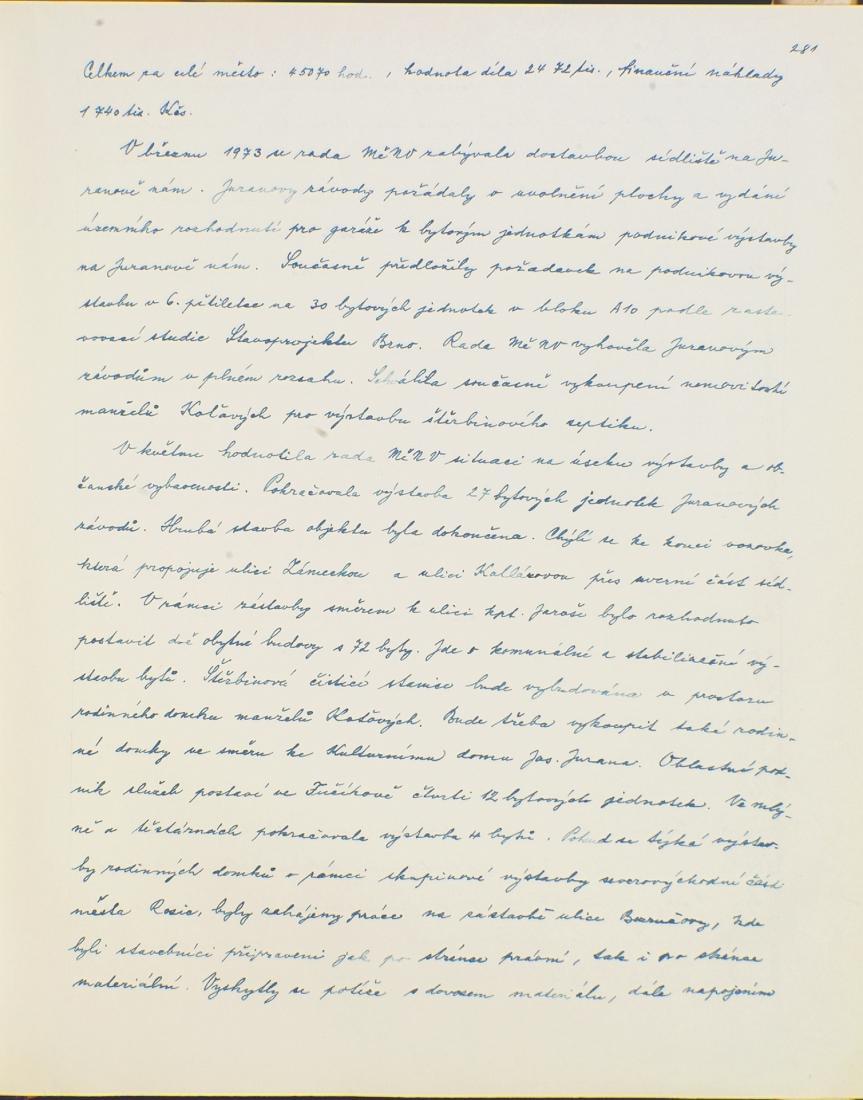 281
Celkem za celé město: 45070 hod., hodnota díla 24 72 tis., finanční náklady
1 740 tis. Kčs.
V březnu 1973 se rada MěNV zabývala dostavbou sídliště na Ju-
ranově nám. Juranovy závody požádaly o uvolnění plochy a vydání
územního rozhodnutí pro garáže k bytovým jednotkám podnikové výstavby
na Juranově nám. Současně předložily požadavek na podnikovou vý-
stavbu v 6. pětiletce na 30 bytových jednotek v bloku A10 podle zasta-
vovací studie Stavoprojektu Brno. Rada MěNV vyhověla Juranovým
závodům v plném rozsahu. Schválila současně vykoupení nemovitostí
manželů Koťavých pro výstavbu štěrbinového septiku.
V květnu hodnotila rada MěNV situaci na úseku výstavby a ob-
čanské vybavenosti. Pokračovala výstavba 27 bytových jednotek Juranových
závodů. Hrubá stavba objektu byla dokončena. Chýlí se ke konci vozovka,
která propojuje ulici Zámeckou a ulici Kollárovou přes severní část síd-
liště. V rámci zástavby směrem k ulici kpt. Jaroše bylo rozhodnuto
postavit dvě obytné budovy s 72 byty. Jde o komunální a stabilizační vý-
stavbu bytů. Štěrbinová čistící stanice bude vybudována v prostoru
rodinného domku manželů Koťových. Bude třeba vykoupit také rodin-
né domky ve směru ke Kulturnímu domu Jos. Jurana. Oblastní pod-
nik služeb postaví ve Fučíkově čtvrti 12 bytových jednotek. Ve mlý-
ně a těstárnách pokračovala výstavba 4 bytů. Pokud se týká výstav-
by rodinných domků v rámci skupinové výstavby severovýchodní část
města Rosic, byly zahájeny práce na zástavbě ulice Bezručovy, kde
byli stavebníci připraveni jak po stránce právní, tak i po stránce
materiální. Vyskytly se potíže s dovozem materiálu, dále napojením